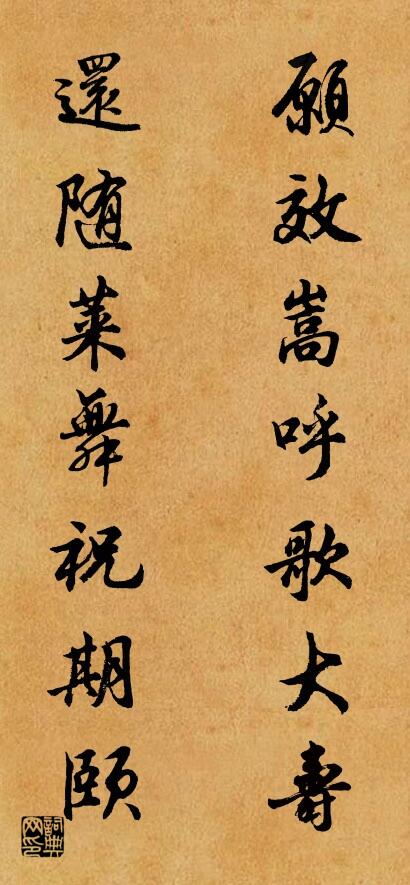 願效嵩呼歌大壽
還随莱舞祝期頤
詞典网印